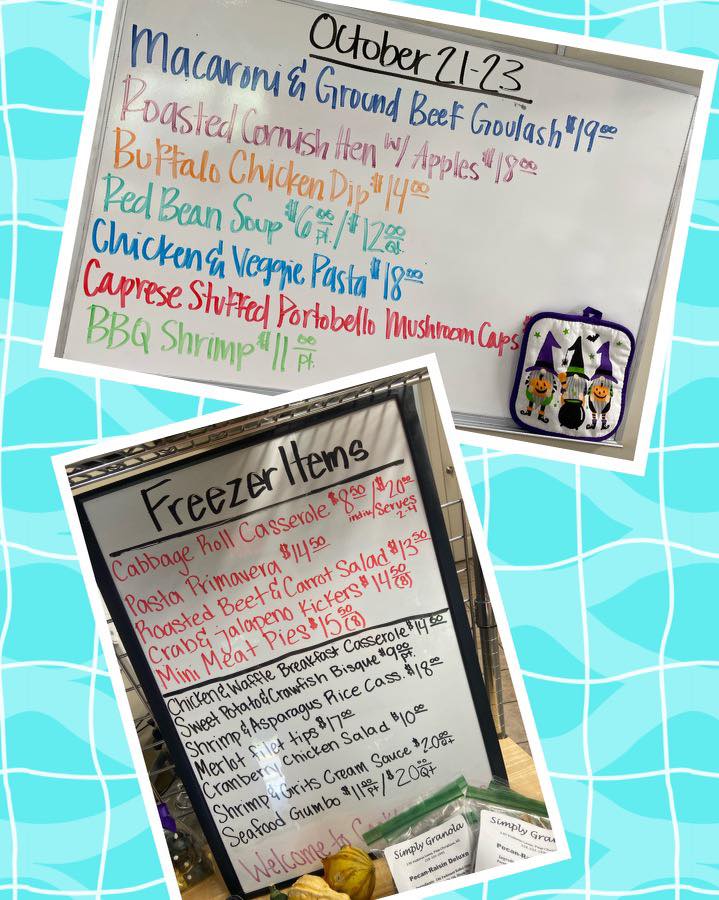 October 21-23
Macaroni & Ground Beef Goulash $19.00
Roasted Cornish Hen w/ Apples $18.00
Buffalo Chicken Dip $14.00
Red Bean Soup $6.00 pt. / $12.00 Qt.
Chicken & Veggie Pasta $18.00
Caprese Stuffed Portobello Mushroom Caps $
BBQ Shrimp $11.00 pt.
Freezer Items
Cabbage Roll Casserole $8.50 indiv / $20.00 Serves 2-4
Pasta Primavera $14.50
Roasted Beet & Carrot Salad $13.50
Crab & Jalapeno Kickers $14.50 (8)
Mini Meat Pies $15.50 (8)
Chicken & Waffle Breakfast Casserole $14.50
Sweet Potato & Crawfish Bisque $9.00 pt.
Shrimp & Asparagus Rice Cass. $18.00
Merlot filet tips $17.00
Cranberry Chicken Salad $10.00
Shrimp & Grits Cream Sauce $20.00 Qt
Seafood Gumbo $11.00 pt / $20.00 Qt
Welcome to
Simply Granola
Pecan-Raisin Deluxe
Simply Gra
Pecan-Raisin